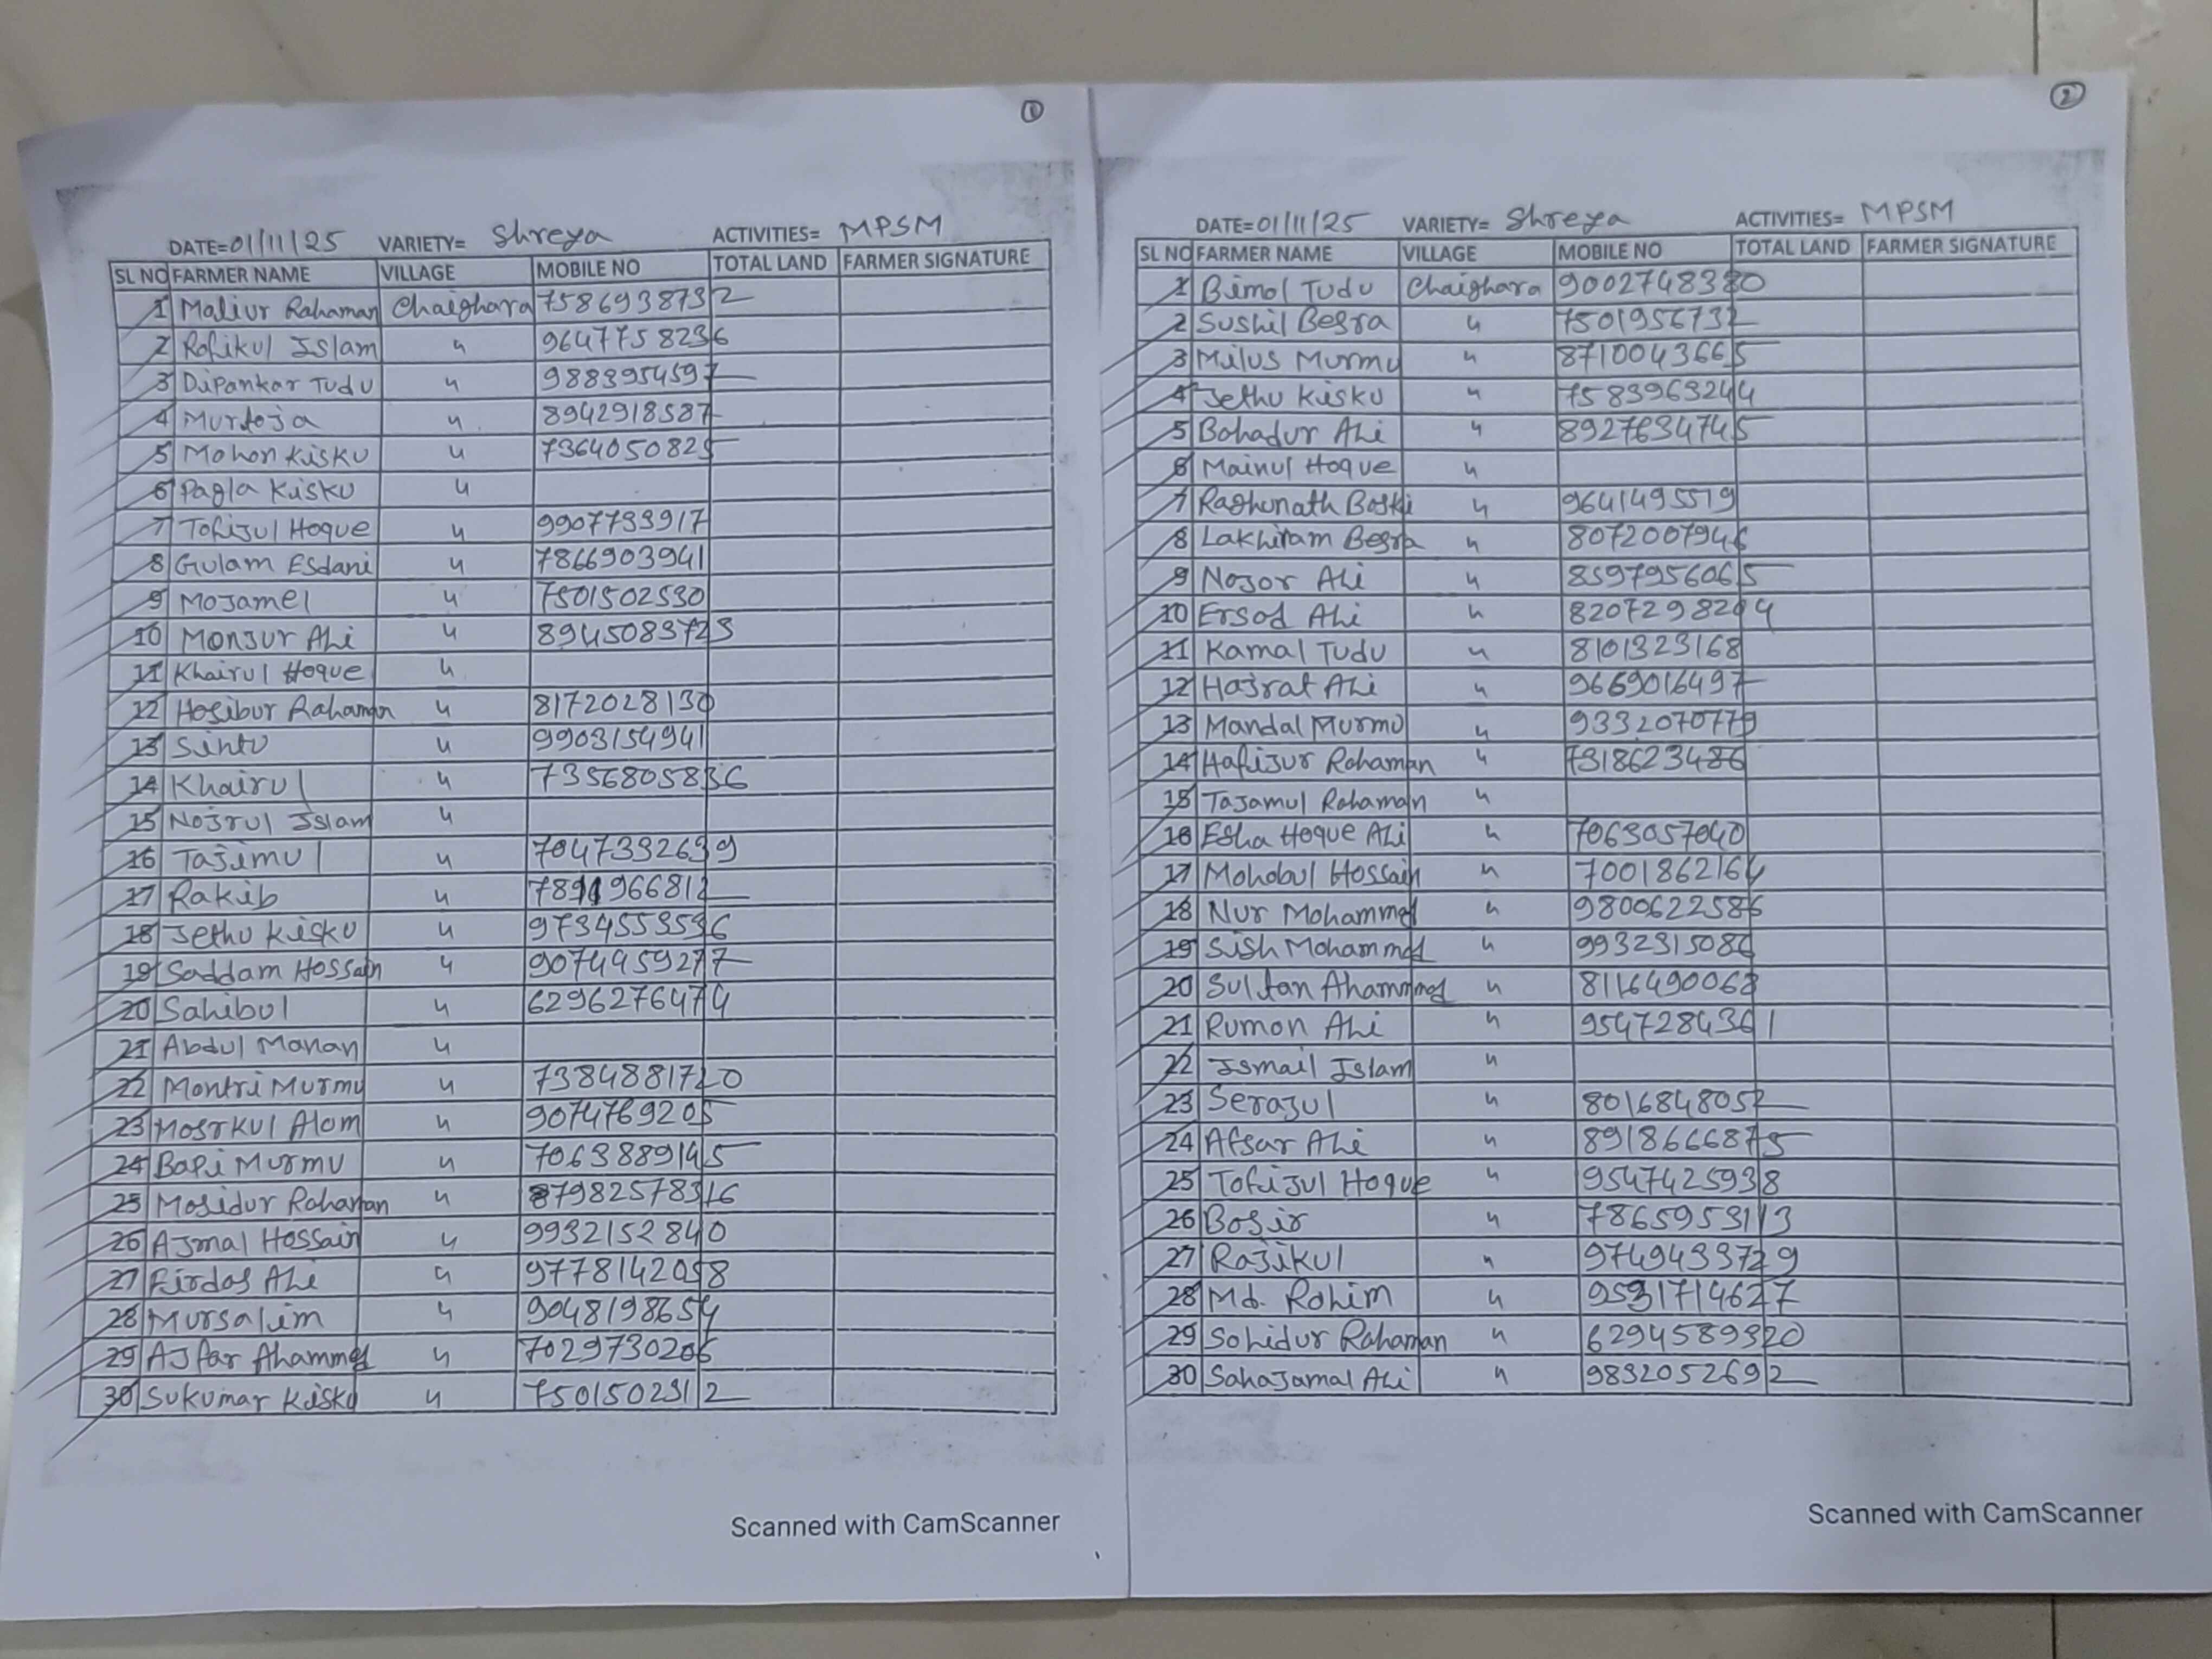 ①
DATE=01/11/25 VARIETY= Shreya ACTIVITIES= MPSM
SL NO FARMER NAME VILLAGE MOBILE NO TOTAL LAND FARMER SIGNATURE
1 Maliur Rahaman Chaighara 7586938732
2 Rofikul Islam 〃 9647758236
3 Dipankar Tudu 〃 9883954597
4 Murtoja 〃 8942918587
5 Mohon Kisku 〃 7364050825
6 Pagla Kisku 〃
7 Tofijul Hoque 〃 9907733917
8 Gulam Esdani 〃 7866903941
9 Mojamel 〃 7501502530
10 Monjur Ali 〃 8945083723
11 Khairul Hoque 〃
12 Hosibur Rahaman 〃 8172028130
13 Sintu 〃 9903154941
14 Khairul 〃 7356805836
15 Nojrul Islam 〃
16 Tajimul 〃 7047332639
17 Rakib 〃
18 Jethu Kisku 〃 9734553536
19 Saddam Hossain 〃 9074959277
20 Sahibul 〃 6296276474
21 Abdul Manan 〃
22 Montri Murmu 〃 7384881720
23 Mosrkul Alom 〃 9074769205
24 Bapi Murmu 〃 7063889145
25 Mosidur Rahaman 〃
26 Ajmal Hossain 〃 9932152840
27 Firdos Ali 〃 9778142058
28 Mursalim 〃 9048198654
29 Ajfar Ahammed 〃 7029730206
30 Sukumar Kisku 〃 7501502312
Scanned with CamScanner
②
DATE=01/11/25 VARIETY= Shreya ACTIVITIES= MPSM
SL NO FARMER NAME VILLAGE MOBILE NO TOTAL LAND FARMER SIGNATURE
1 Bimol Tudu Chaighara 9002748380
2 Sushil Besra 〃 7501956732
3 Milus Murmu 〃 8710043665
4 Jethu Kisku 〃 7583963244
5 Bahadur Ali 〃 8927634745
6 Mainul Hoque 〃
7 Raghunath Baski 〃 9641495519
8 Lakhiram Besra 〃 8072007946
9 Nojor Ali 〃 8597956065
10 Ersad Ali 〃 8207298204
11 Kamal Tudu 〃 8101323168
12 Hajrat Ali 〃 9669016497
13 Mandal Murmu 〃 9332070779
14 Hafijur Rahaman 〃 7318623486
15 Tajamul Rahaman 〃
16 Esha Hoque Ali 〃 7063057040
17 Mohobul Hossain 〃 7001862164
18 Nur Mohammed 〃 9800622586
19 Sish Mohammed 〃 9932315086
20 Sultan Ahammed 〃 8116490068
21 Rumon Ali 〃 9547284361
22 Ismail Islam 〃
23 Serajul 〃 8016848052
24 Afsar Ali 〃 8918666875
25 Tofijul Hoque 〃 9547425938
26 Bosir 〃 7865953113
27 Rajikul 〃 9749433729
28 Md. Rohim 〃 9531714627
29 Sohidur Rahaman 〃 6294589320
30 Sahajamal Ali 〃 9832052692
Scanned with CamScanner